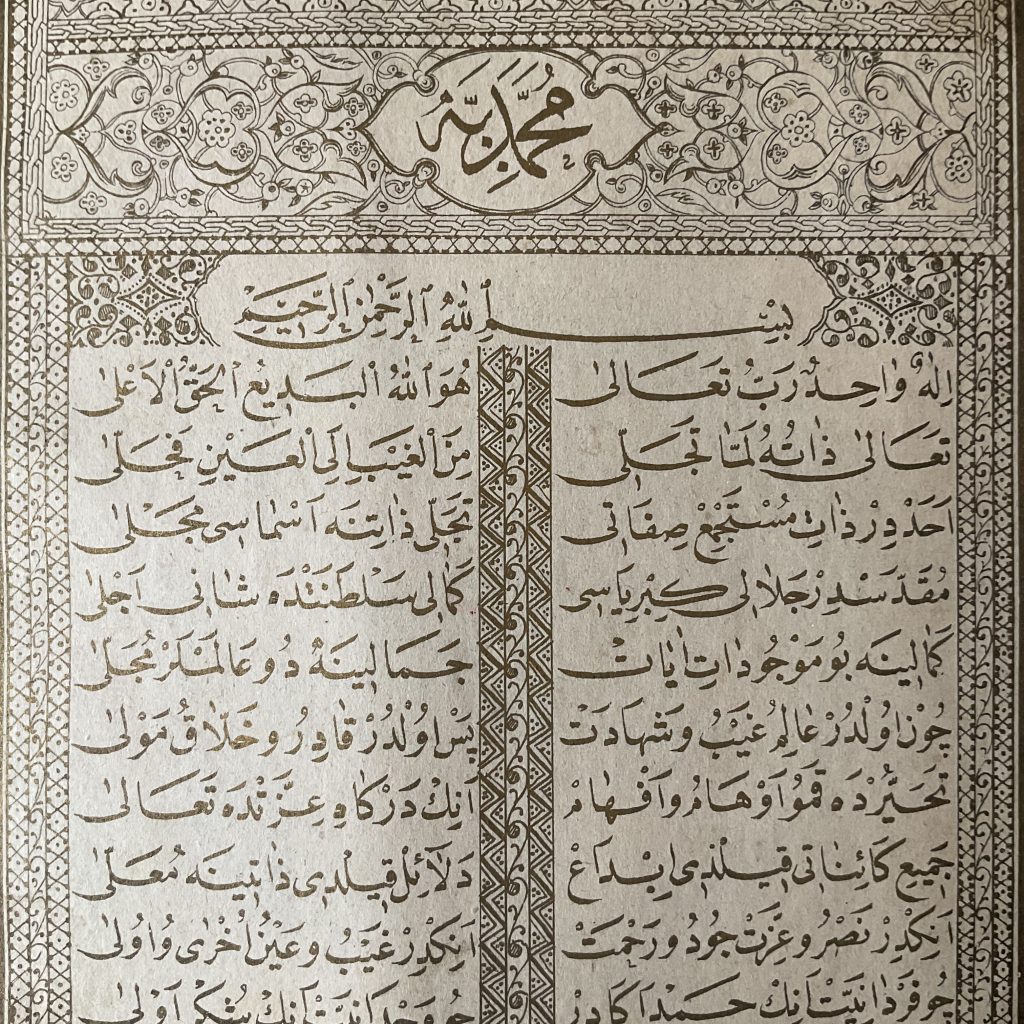 مُحَمَّدِيَّه
بِسْمِ ٱللّٰهِ ٱلرَّحْمٰنِ ٱلرَّحِيمِ
اِلٰهٌ وٰاحِدٌ رَبُّ تَعَالىٰ هُوَ اللّٰهُ الْبَدِيعُ الْحَقُّ الْاَعْلىٰ
تَعَالىٰ ذٰاتُهُ لَمَّا تَجَلّٰى مِنَ الْغَيْبِ اِلَى الْعَيْنِ فَحَلّٰى
اَحَدْ دِرْ ذٰاتِ مُسْتَجْمِعْ صِفَاتى تَجَلّٰى ذٰاتِنَه اَسْمٰاسى مَجْلٰى
مُقَدَّسْدِرْ جَلٰالى كِبْرِيٰاسى كَمٰالى سَلْطَنَتْدَه شٰانى اَجْلٰى
كَمٰالِينَه بُو مَوْجُودٰاتِ اٰيٰاتْ جَمَالِينَه دُو عَالَمْلَرْ مُجَلّٰى
چُونْ اُولْدُرْ عٰالِمِ غَيْبُ وَشَهٰادَتْ پَسْ اُولْدُرْ قٰادِرُ وخَلّٰاقُ مَوْلىٰ
تَحَيُّرْدَه قَمُو اَوْهٰامُ وَاَفْهٰامْ اَنِكْ دَرْكٰاهِ عِزَّتْدَه تَعَالىٰ
جَمِيعِ كَائِنٰاتى قِيلْدِى اِبْدَاعْ دَلٰائِلْ قِيلْدِى ذٰاتِينَه مُعَلّٰى
اَنِكْدِرْ نَصْرُ وعِزَّتْ جُودُ ورَحْمَتْ اَنِكْدِرْ غَيْبُ وعَيْنُ اُخْرٰى وُ اُولىٰ
چُو فَرْدٰانِيَّتْ اَنِكْ حَمْدَه كٰادِرْ چُو وَحْدَانِيَّتْ اَنِكْ شُكْرْ اَوْلىٰ